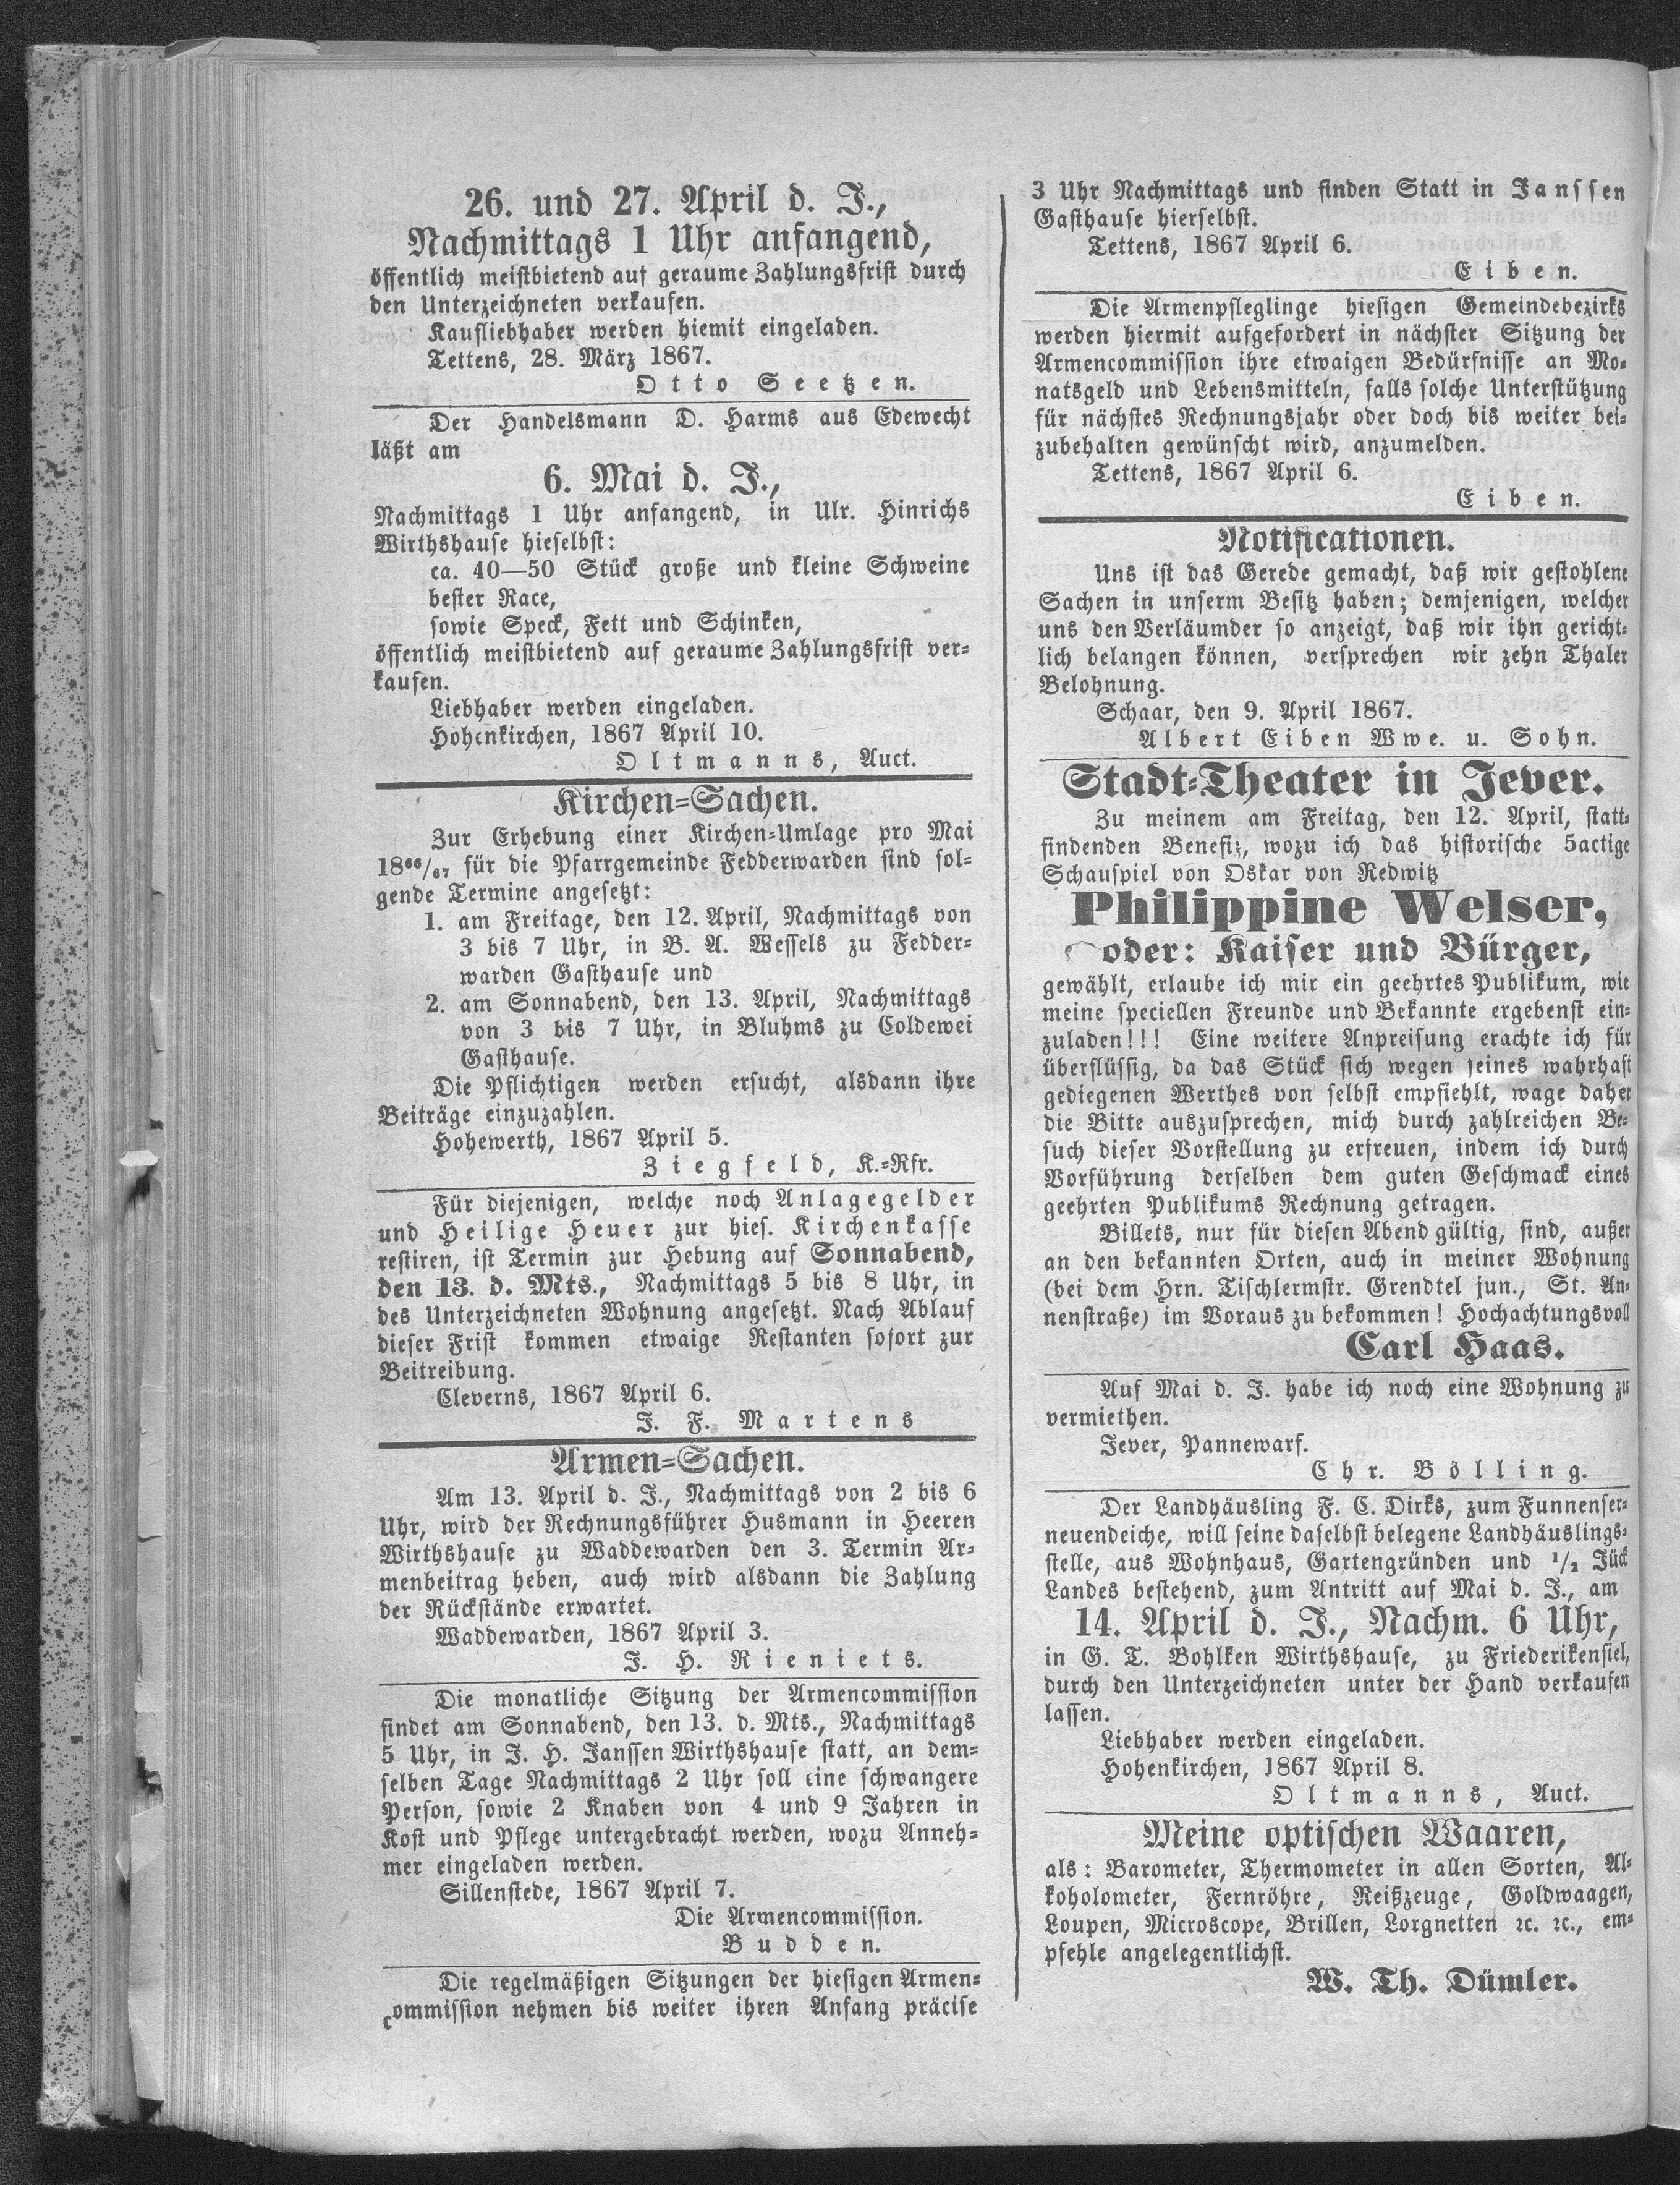 26. und 27. April d. J.,
Nachmittags 1 Uhr anfangend,
öffentlich meistbietend auf geraume Zahlungsfrist durch
den Unterzeichneten verkaufen.
Kaufliebhaber werden hiemit eingeladen.
Tettens, 28. März 1867.
Otto Seetzen.
Der Handelsmann D. Harms aus Edewecht
läßt am
6. Mai d. J.,
Nachmittags 1 Uhr anfangend, in Ulr. Hinrichs
Wirthshause hieselbst:
ca. 40—50 Stück große und kleine Schweine
bester Race,
sowie Speck, Fett und Schinken,
öffentlich meistbietend auf geraume Zahlungsfrist ver-
kaufen.
Liebhaber werden eingeladen.
Hohenkirchen, 1867 April 10.
Oltmanns, Auct.
Kirchen-Sachen.
Zur Erhebung einer Kirchen-Umlage pro Mai
18⁶⁶/₆₇ für die Pfarrgemeinde Fedderwarden sind fol-
gende Termine angesetzt:
1. am Freitage, den 12. April, Nachmittags von
3 bis 7 Uhr, in B. A. Wessels zu Fedder-
warden Gasthause und
2. am Sonnabend, den 13. April, Nachmittags
von 3 bis 7 Uhr, in Bluhms zu Coldewei
Gasthause.
Die Pflichtigen werden ersucht, alsdann ihre
Beiträge einzuzahlen.
Hohewerth, 1867 April 5.
Ziegfeld, K.-Rfr.
Für diejenigen, welche noch Anlagegelder
und Heilige Heuer zur hies. Kirchenkasse
restiren, ist Termin zur Hebung auf Sonnabend,
den 13. d. Mts., Nachmittags 5 bis 8 Uhr, in
des Unterzeichneten Wohnung angesetzt. Nach Ablauf
dieser Frist kommen etwaige Restanten sofort zur
Beitreibung.
Cleverns, 1867 April 6.
J. F. Martens
Armen-Sachen.
Am 13. April d. J., Nachmittags von 2 bis 6
Uhr, wird der Rechnungsführer Husmann in Heeren
Wirthshause zu Waddewarden den 3. Termin Ar-
menbeitrag heben, auch wird alsdann die Zahlung
der Rückstände erwartet.
Waddewarden, 1867 April 3.
J. H. Rieniets.
Die monatliche Sitzung der Armencommission
findet am Sonnabend, den 13. d. Mts., Nachmittags
5 Uhr, in J. H. Janssen Wirthshause statt, an dem-
selben Tage Nachmittags 2 Uhr soll eine schwangere
Person, sowie 2 Knaben von 4 und 9 Jahren in
Kost und Pflege untergebracht werden, wozu Anneh-
mer eingeladen werden.
Sillenstede, 1867 April 7.
Die Armencommission.
Budden.
Die regelmäßigen Sitzungen der hiesigen Armen-
commission nehmen bis weiter ihren Anfang präcise
3 Uhr Nachmittags und finden Statt in Janssen
Gasthause hierselbst.
Tettens, 1867 April 6.
Eiben.
Die Armenpfleglinge hiesigen Gemeindebezirks
werden hiermit aufgefordert in nächster Sitzung der
Armencommission ihre etwaigen Bedürfnisse an Mo-
natsgeld und Lebensmitteln, falls solche Unterstützung
für nächstes Rechnungsjahr oder doch bis weiter bei-
zubehalten gewünscht wird, anzumelden.
Tettens, 1867 April 6.
Eiben.
Notificationen.
Uns ist das Gerede gemacht, daß wir gestohlene
Sachen in unserm Besitz haben; demjenigen, welcher
uns den Verläumder so anzeigt, daß wir ihn gericht-
lich belangen können, versprechen wir zehn Thaler
Belohnung.
Schaar, den 9. April 1867.
Albert Eiben Wwe. u. Sohn.
Stadt-Theater in Jever.
Zu meinem am Freitag, den 12. April, statt-
findenden Benefiz, wozu ich das historische 5actige
Schauspiel von Oskar von Redwitz
Philippine Welser,
oder: Kaiser und Bürger,
gewählt, erlaube ich mir ein geehrtes Publikum, wie
meine speciellen Freunde und Bekannte ergebenst ein-
zuladen!!! Eine weitere Anpreisung erachte ich für
überflüssig, da das Stück sich wegen seines wahrhaft
gediegenen Werthes von selbst empfiehlt, wage daher
die Bitte auszusprechen, mich durch zahlreichen Be-
such dieser Vorstellung zu erfreuen, indem ich durch
Vorführung derselben dem guten Geschmack eines
geehrten Publikums Rechnung getragen.
Billets, nur für diesen Abend gültig, sind, außer
an den bekannten Orten, auch in meiner Wohnung
(bei dem Hrn. Tischlermstr. Grendtel jun., St. An-
nenstraße) im Voraus zu bekommen! Hochachtungsvoll
Carl Haas.
Auf Mai d. J. habe ich noch eine Wohnung zu
vermiethen.
Jever, Pannewarf.
Chr. Bölling.
Der Landhäusling F. C. Dirks, zum Funnenser-
neuendeiche, will seine daselbst belegene Landhäuslings-
stelle, aus Wohnhaus, Gartengründen und ½ Jück
Landes bestehend, zum Antritt auf Mai d. J., am
14. April d. J., Nachm. 6 Uhr,
in G. T. Bohlken Wirthshause, zu Friederikensiel,
durch den Unterzeichneten unter der Hand verkaufen
lassen.
Liebhaber werden eingeladen.
Hohenkirchen, 1867 April 8.
Oltmanns, Auct.
Meine optischen Waaren,
als: Barometer, Thermometer in allen Sorten, Al-
koholometer, Fernröhre, Reißzeuge, Goldwaagen,
Loupen, Microscope, Brillen, Lorgnetten ꝛc. ꝛc., em-
pfehle angelegentlichst.
W. Th. Dümler.